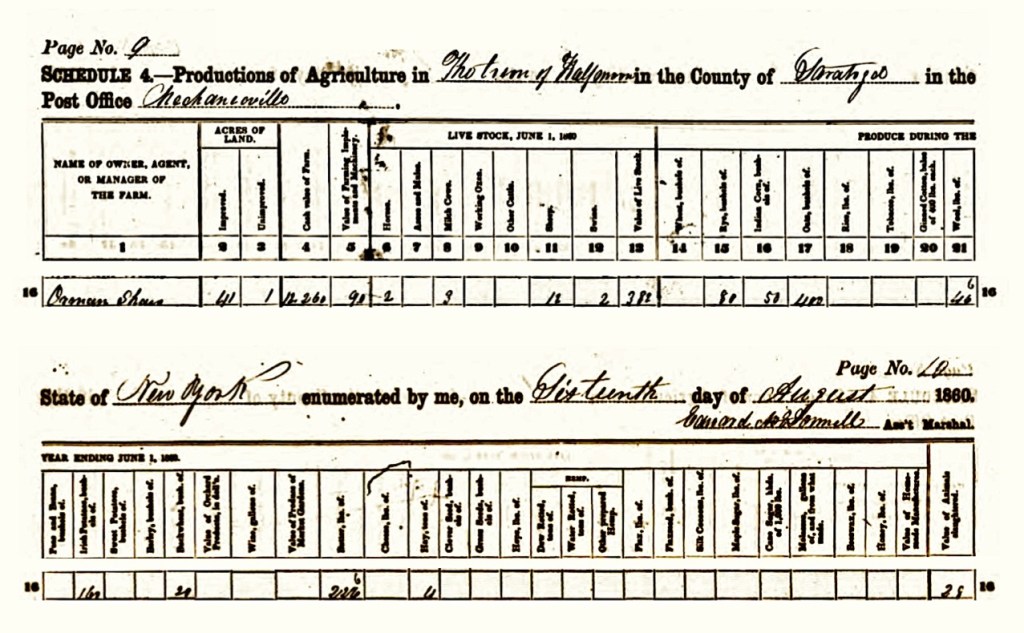 Page No. 9
SCHEDULE 4.—Productions of Agriculture in The town of Halfmoon in the County of Saratoga in the
Post Office Mechanicville
NAME OF OWNER, AGENT, OR MANAGER OF THE FARM.
ACRES OF LAND.
Improved.
Unimproved.
Cash value of Farm.
Value of Farming Implements and Machinery.
LIVE STOCK, JUNE 1, 1860
Horses.
Asses and Mules.
Milch Cows.
Working Oxen.
Other Cattle.
Sheep.
Swine.
Value of Live Stock.
PRODUCE DURING THE
Wheat, bushels of.
Rye, bushels of.
Indian Corn, bushels of.
Oats, bushels of.
Rice, lbs. of.
Tobacco, lbs. of.
Ginned Cotton, bales of 400 lbs. each.
Wool, lbs. of.
1 2 3 4 5 6 7 8 9 10 11 12 13 14 15 16 17 18 19 20 21
16 Orman Shaw 41 1 90 2 3 12 2 382 80 50 400 16
Page No. 10
State of New York enumerated by me, on the Sixteenth day of August 1860.
Edward McDonnell Ass't Marshal.
YEAR ENDING JUNE 1, 1860.
Peas and Beans, bushels of.
Irish Potatoes, bushels of.
Sweet Potatoes, bushels of.
Barley, bushels of.
Buckwheat, bush. of.
Value of Orchard Products, in doll's.
Wine, gallons of.
Value of Produce of Market Gardens.
Butter, lbs. of.
Cheese, lbs. of.
Hay, tons of.
Clover Seed, bushels of.
Grass Seeds, bushels of.
Hops, lbs. of.
HEMP.
Dew Rotted, tons of.
Water Rotted, tons of.
Other prepared Hemp.
Flax, lbs. of.
Flaxseed, bush. of.
Silk Cocoons, lbs. of.
Maple Sugar, lbs. of.
Cane Sugar, hhds. of 1,000 lbs.
Molasses, gallons of, and from what made.
Beeswax, lbs. of.
Honey, lbs. of.
Value of Home-made Manufactures.
Value of Animals slaughtered.
16 160 20 4 16